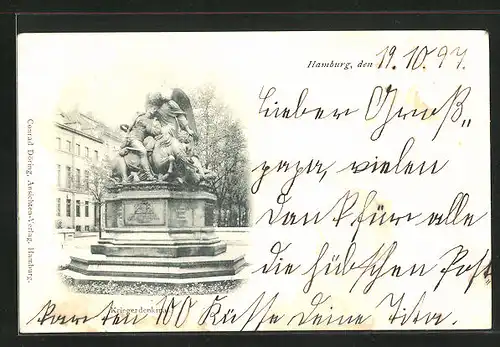 Hamburg, den 19.10.97.
lieber Groß„
papa, vielen
Dank für alle
die hübschen Post„
karten 100 Küsse Deine Tita.
Kriegerdenkmal
Conrad Döring, Ansichten-Verlag, Hamburg.